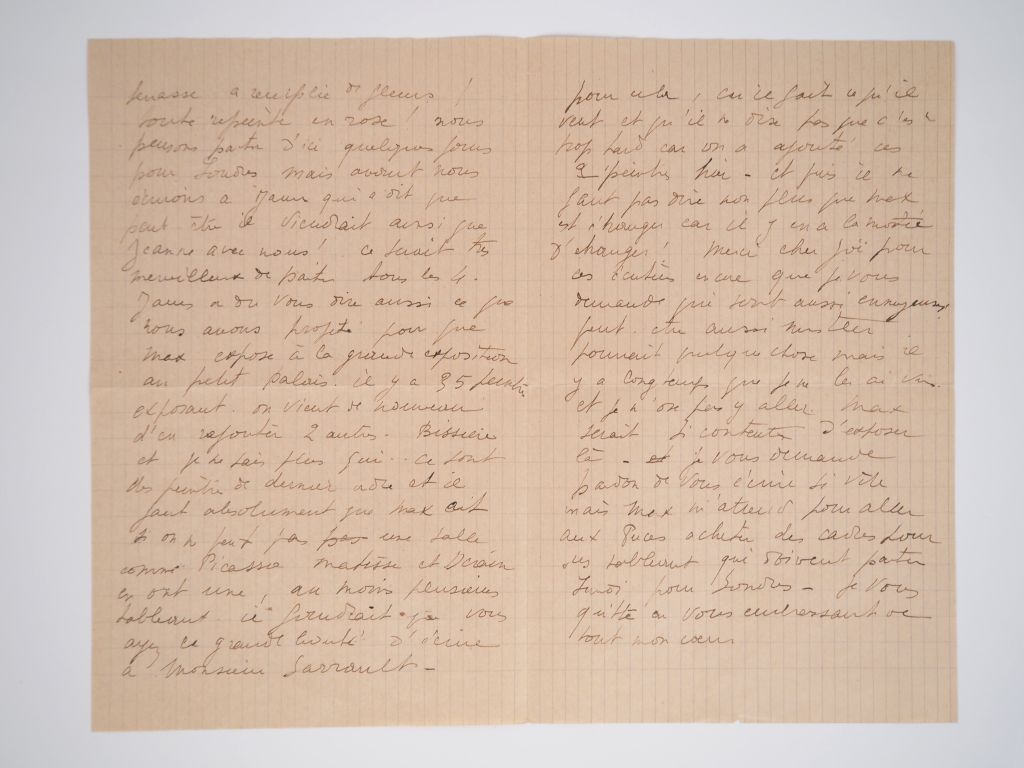 a remplie de fleurs !
toute repeinte en rose ! nous
pensons partir d'ici quelques jours
pour Londres mais avant nous
écrivons a James qui a dit que
peut être il viendrait ainsi que
Jeanne avec nous ! ce serait très
merveilleux de partir tous les 4.
James a du vous dire aussi ce que
nous avons projeté pour que
Max expose à la grande exposition
au petit Palais. il y a 35 peintres
exposant. on vient de nouveau
d'en rajouter 2 autres. Bissière
et je ne sais plus qui.. ce sont
des peintre de dernier ordre et il
faut absolument que Max ait
si on ne peut pas pas une salle
comme Picasso Matisse et Derain
en ont une, au moins plusieurs
tableaux. il faudrait que vous
ayez la grande bonté d'écrire
à Monsieur Sarrault -
pour cela, car il fait ce qu'il
veut et qu'il ne dise pas que c'est
trop tard car on a ajouté ces
2 peintres hier - et puis il ne
faut pas dire non plus que Max
est étranger car il y en a la moitié
d'étranger ! Merci cher Joë pour
ces encore que je vous
demande qui sont aussi ennuyeuses
peut être aussi
pourrait quelque chose mais il
y a longtemps que je ne les ai vus.
et je n'ose pas y aller. Max
serait si content d'exposer
là - et je vous demande
pardon de vous écrire si vite
mais Max m'attend pour aller
aux Puces acheter des cadres pour
ses tableaux qui doivent partir
pour Londres - je vous
quitte en vous embrassant de
tout mon cœur